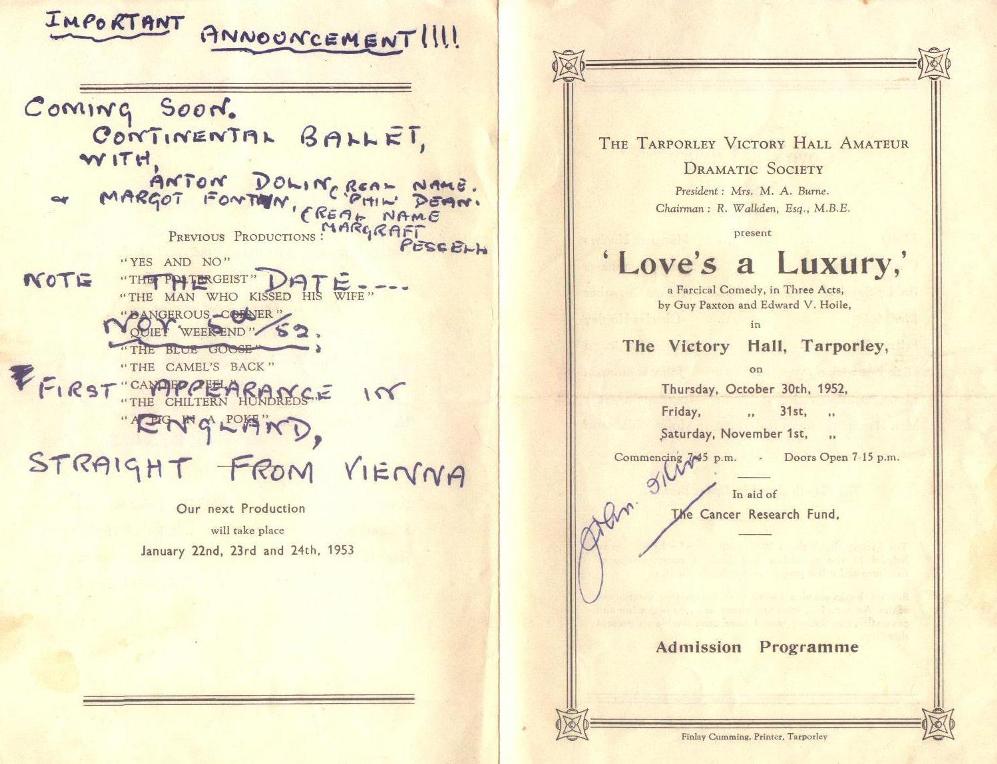 IMPORTANT
ANNOUNCEMENT!!!!
COMING SOON.
CONTINENTAL BALLET,
WITH,
ANTON DOLIN, (REAL NAME.
PHIL DEAN.
& MARGOT FONTYN, (REAL NAME
MARGRAFT
PESSELL
PREVIOUS PRODUCTIONS:
"YES AND NO"
NOTE THE DATE....
"THE POLTERGEIST"
"THE MAN WHO KISSED HIS WIFE"
"DANGEROUS CORNER"
NOV. 5TH/52.
"QUIET WEEK-END"
"THE BLUE GOOSE"
"THE CAMEL'S BACK"
"CANDIED PEEL"
FIRST APPEARANCE IN
"THE CHILTERN HUNDREDS"
"A PIG IN A POKE"
ENGLAND,
STRAIGHT FROM VIENNA
Our next Production
will take place
January 22nd, 23rd and 24th, 1953
THE TARPORLEY VICTORY HALL AMATEUR
DRAMATIC SOCIETY
President : Mrs. M. A. Burne.
Chairman : R. Walkden, Esq., M.B.E.
present
'Love's a Luxury,'
a Farcical Comedy, in Three Acts,
by Guy Paxton and Edward V. Hoile,
in
The Victory Hall, Tarporley,
on
Thursday, October 30th, 1952,
Friday, „ 31st, „
Saturday, November 1st, „
Commencing 7-45 p.m. - Doors Open 7-15 p.m.
In aid of
The Cancer Research Fund.
John
Admission Programme
Finlay Cumming, Printer, Tarporley